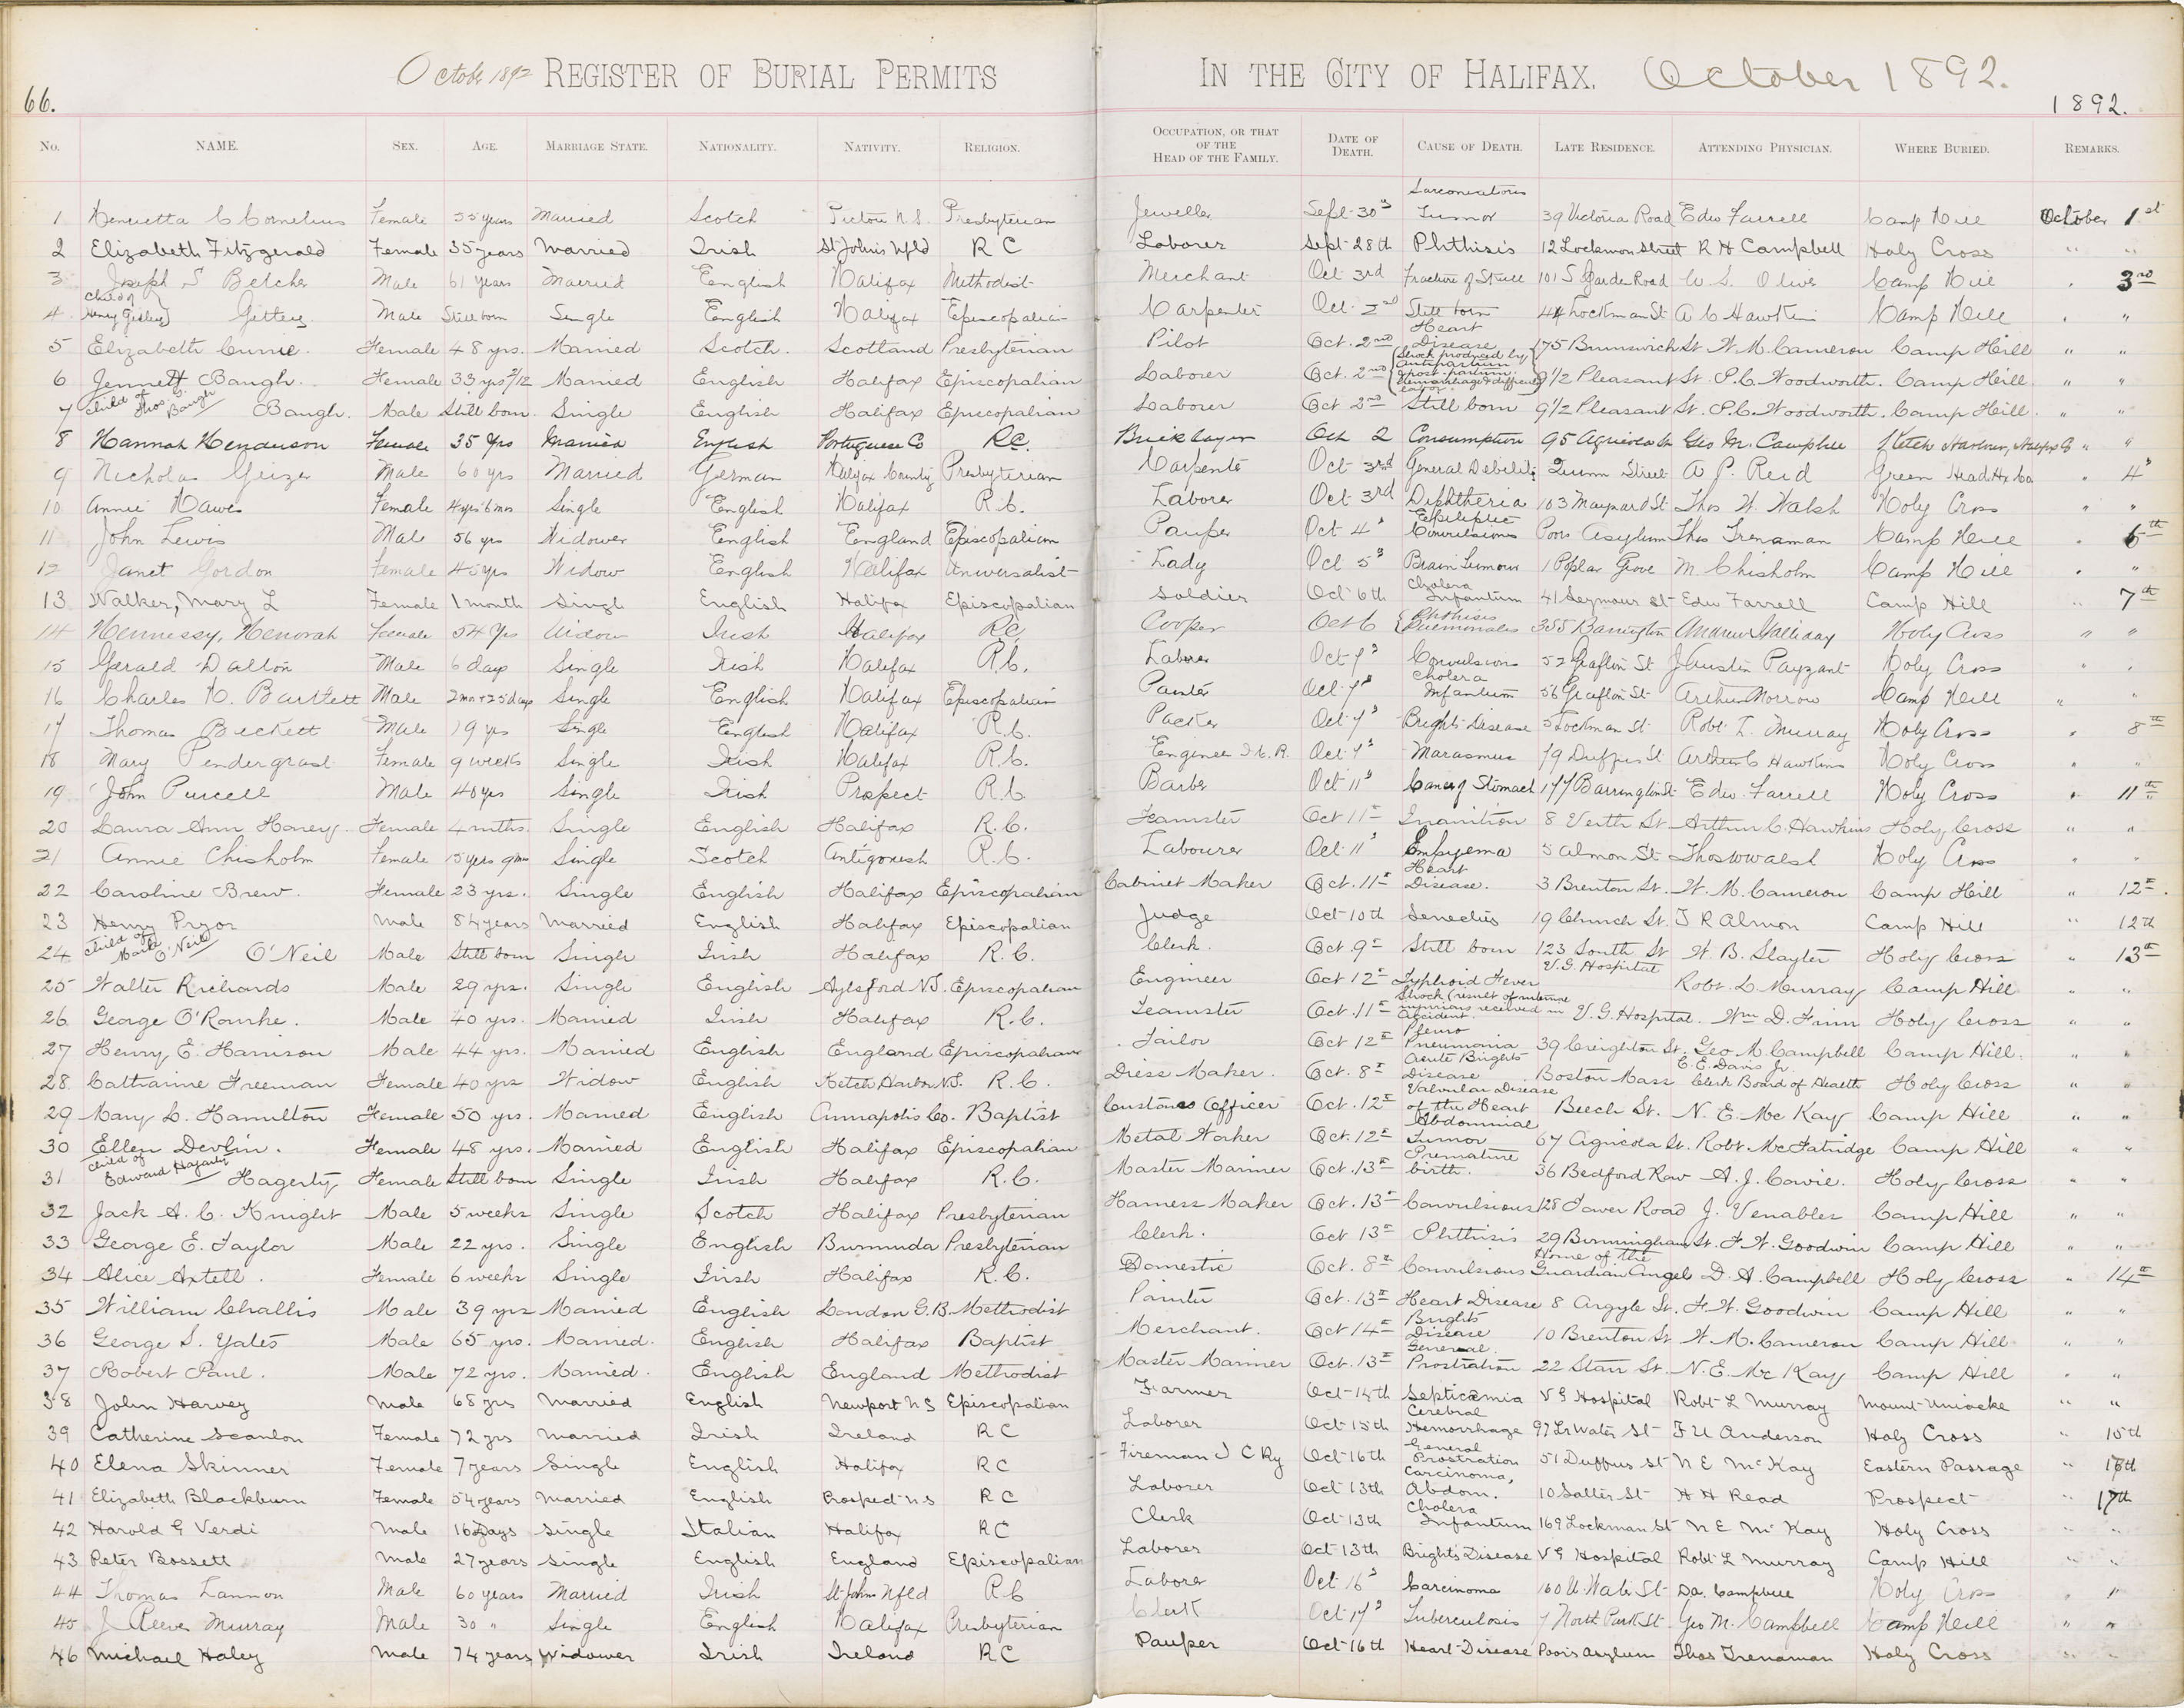 October 1892 REGISTER OF BURIAL PERMITS IN THE CITY OF HALIFAX. October 1892.
66. 1892.
No. NAME. SEX. AGE. MARRIAGE STATE. NATIONALITY. NATIVITY. RELIGION. OCCUPATION, OR THAT OF THE HEAD OF THE FAMILY. DATE OF DEATH. CAUSE OF DEATH. LATE RESIDENCE. ATTENDING PHYSICIAN. WHERE BURIED. REMARKS.
1 Henrietta C Cornelius Female 55 years Married Scotch Pictou N.S. Presbyterian Jeweller Sept 30th Tumor 39 Victoria Road Edw Farrell Camp Hill October 1st
2 Elizabeth Fitzgerald Female 35 years Married Irish St Johns Nfld R C Laborer Sept 28th Phthisis 12 Lockmon Street R H Campbell Holy Cross " "
3 Joseph S Belcher Male 61 years Married English Halifax Methodist Merchant Oct 3rd Fracture of Skull 101 S Garden Road W. S. Oliver Camp Hill " 3rd
4 Child of Henry Getley Male Still born Single English Halifax Episcopalian Carpenter Oct 2nd Still born 44 Lockman St A C Hawkins Camp Hill " "
5 Elizabeth Currie. Female 48 yrs. Married Scotch. Scotland Presbyterian Pilot Oct. 2nd Heart Disease 175 Brunswick St. W. M. Cameron Camp Hill " "
6 Jennett Baugh. Female 33 yrs 7/12 Married English Halifax Episcopalian Laborer Oct. 2nd Shock produced by antipartum & post-partum Hemorrhage & difficult labor. 9 1/2 Pleasant St. P.C. Woodworth. Camp Hill " "
7 Child of Thos. C. Baugh Baugh. Male Still born. Single English Halifax Episcopalian Laborer Oct 2nd Still born 9 1/2 Pleasant St. P.C. Woodworth. Camp Hill. " "
8 Hannah Henderson Female 35 Yrs Married English Portuguese Co RC. Bricklayer Oct 2 Consumption 95 Agricola St Geo M. Campbell Ketch Harbour, Halifax Co " "
9 Nicholas Geizer Male 60 yrs Married German Halifax County Presbyterian Carpenter Oct 3rd General Debility Quinn Street A P. Reid Green Head Hx Co " 4th
10 Annie Hawes Female 4 yrs 6 mos Single English Halifax R.C. Laborer Oct 3rd Diphtheria 103 Maynard St Thos W. Walsh Holy Cross " "
11 John Lewis Male 56 yrs Widower English England Episcopalian Pauper Oct 4th Epileptic Convulsions Poors Asylum Thos Trenaman Camp Hill " 6th
12 Janet Gordon Female 45 yrs Widow English Halifax Universalist Lady Oct 5th Brain Tumour 1 Poplar Grove M. Chisholm Camp Hill " "
13 Walker, Mary L Female 1 month Single English Halifax Episcopalian Soldier Oct 6th Cholera Infantum 41 Seymour St Edw Farrell Camp Hill " 7th
14 Hennessy, Henorah Female 54 Yrs Widow Irish Halifax RC Cooper Oct 6 Phthisis Pulmonales 355 Barrington Andrew Halliday Holy Cross " "
15 Gerald Dalton Male 6 days Single Irish Halifax R.C. Laborer Oct 7th Convulsions 52 Grafton St J Austin Payzant Holy Cross " "
16 Charles H. Bartlett Male 2 mo + 25 days Single English Halifax Episcopalian Painter Oct. 7th Cholera Infantum 56 Grafton St Arthur Morrow Camp Hill " "
17 Thomas Beckett Male 19 yrs Single English Halifax R.C. Packer Oct 7th Brights Disease 5 Lockman St Robt L. Murray Holy Cross " 8th
18 Mary Pendergrast Female 9 weeks Single Irish Halifax R.C. Engineer I.C.R. Oct 7th Marasmus 19 Duffus St Arthur C Hawkins Holy Cross " "
19 John Purcell Male 40 yrs Single Irish Prospect R.C. Barber Oct 11th Cancer of Stomach 177 Barrington St Edw. Farrell Holy Cross " 11th
20 Laura Ann Honery Female 4 mths. Single English Halifax R.C. Teamster Oct 11th Inanition 8 Veith St. Arthur C. Hawkins Holy Cross " "
21 Annie Chisholm Female 15 yrs 9 mos Single Scotch Antigonish R.C. Labourer Oct 11th Empyema 5 Almon St Thos W Walsh Holy Cross " "
22 Caroline Brew. Female 23 yrs. Single English Halifax Episcopalian Cabinet Maker Oct. 11th Heart Disease. 3 Brenton St. W. M. Cameron Camp Hill " 12th.
23 Henry Pryor Male 84 years Married English Halifax Episcopalian Judge Oct 10th Senectus 19 Church St. T R Almon Camp Hill " 12th
24 Child of Mark O'Neil O'Neil Male Still born Single Irish Halifax R.C. Clerk. Oct. 9th Still born 123 South St W. B. Slayter Holy Cross " 13th
25 Walter Richards Male 29 yrs. Single English Aylsford N.S. Episcopalian Engineer Oct 12th Typhoid Fever V.G. Hospital Robt. L. Murray Camp Hill " "
26 George O'Rourke. Male 40 yrs. Married Irish Halifax R.C. Teamster Oct. 11th Shock (result of internal injuries received in accident V.G. Hospital. Wm D. Finn Holy Cross " "
27 Henry E. Harrison Male 44 yrs. Married English England Episcopalian Tailor Oct 12th Pleuro Pneumonia 39 Creighton St. Geo M. Campbell Camp Hill. " "
28 Catharine Freeman Female 40 yrs Widow English Ketch Harbor N.S. R.C. Dress Maker. Oct. 8th Acute Brights Disease Boston Mass E. E. Davis Jr. Clerk Board of Health Holy Cross " "
29 Mary L. Hamilton Female 50 yrs. Married English Annapolis Co. Baptist Customs Officer Oct. 12th Valvular Disease of the Heart Beech St. N. E. McKay Camp Hill " "
30 Ellen Devlin. Female 48 yrs. Married English Halifax Episcopalian Metal Worker Oct. 12th Abdominal Tumor 67 Agricola St. Robt. McFatridge Camp Hill " "
31 Child of Edward Hagerty Hagerty Female Still born Single Irish Halifax R.C. Master Mariner Oct. 13th Premature birth. 36 Bedford Row A. J. Cowie. Holy Cross " "
32 Jack A. C. Knight Male 5 weeks Single Scotch Halifax Presbyterian Harness Maker Oct. 13th Convulsions 128 Tower Road J. Venables Camp Hill " "
33 George E. Taylor Male 22 yrs. Single English Burmuda Presbyterian Clerk. Oct 13th Phthisis 29 Birmingham St. F. W. Goodwin Camp Hill " "
34 Alice Axtell. Female 6 weeks Single Irish Halifax R.C. Domestic Oct. 8th Convulsions Home of the Guardian Angel D. A. Campbell Holy Cross " 14th
35 William Challis Male 39 yrs Married English London G.B. Methodist Painter Oct. 13th Heart Disease 8 Argyle St. F. W. Goodwin Camp Hill " "
36 George S. Yates Male 65 yrs. Married. English Halifax Baptist Merchant. Oct 14th Brights Disease 10 Brenton St W. M. Cameron Camp Hill " "
37 Robert Paul. Male 72 yrs. Married. English England Methodist Master Mariner Oct. 13th General Prostration 22 Starr St. N. E. McKay Camp Hill " "
38 John Harvey Male 68 yrs Married English Newport N S Episcopalian Farmer Oct 14th Septicæmia V G Hospital Robt L Murray Mount Uniacke " "
39 Catherine Scanlon Female 72 yrs Married Irish Ireland R C Laborer Oct 15th Cerebral Hemorrhage 97 Lr Water St F U Anderson Holy Cross " 15th
40 Elena Skinner Female 7 years Single English Halifax R C Fireman I C Ry Oct 16th General Prostration 51 Duffus St N E McKay Eastern Passage " 17th
41 Elizabeth Blackburn Female 54 years Married English Prospect N S R C Laborer Oct 13th Carcinoma, Abdom. 10 Salter St H H Read Prospect " 17th
42 Harold G Verdi Male 16 Days Single Italian Halifax R C Clerk Oct 13th Cholera Infantum 169 Lockman St N E McKay Holy Cross " "
43 Peter Bossett Male 27 years Single English England Episcopalian Laborer Oct 13th Brights Disease V G Hospital Robt L Murray Camp Hill " "
44 Thomas Lannon Male 60 years Married Irish St John Nfld R C Laborer Oct 16th Carcinoma 160 U. Water St DA. Campbell Holy Cross " "
45 J Reeves Murray Male 30 " Single English Halifax Presbyterian Clerk Oct 17th Tuberculosis 7 North Park St Geo M. Campbell Camp Hill " "
46 Michael Haley Male 74 years Widower Irish Ireland R C Pauper Oct 16th Heart Disease Poor's Asylum Thos Trenaman Holy Cross " "